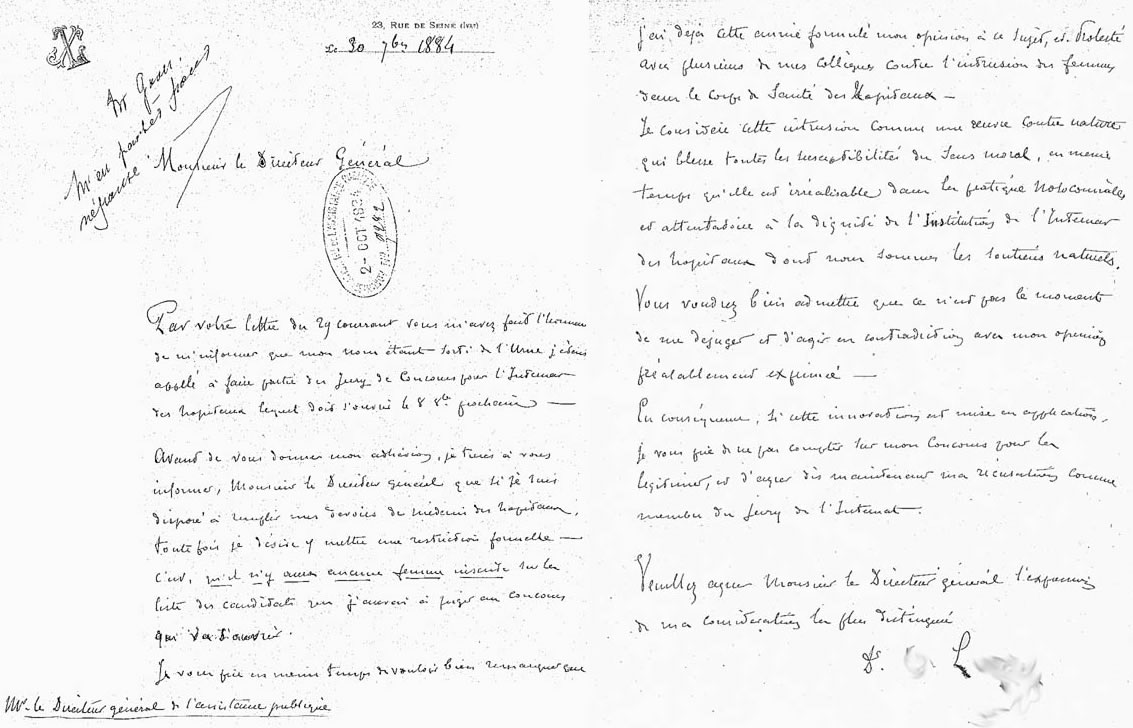 23, RUE DE SEINE
Le 30 7bre 1884
Mr
M'en parler
Monsieur le Directeur Général
2 - OCT 1884
Par votre lettre du 29 courant vous m'avez fait l'honneur
de m'informer que mon nom étant sorti de l'Urne j'étais
appellé à faire partie du Jury de Concours pour l'Internat
des hopitaux lequel doit s'ouvrir le 8 8bre prochain —
Avant de vous donner mon adhésion, je tiens à vous
informer, Monsieur le Directeur général que si je suis
disposé à remplir mes devoirs de médecin des hopitaux,
toutefois je désire y mettre une restriction formelle —
c'est, qu'il n'y aura aucune femme inscrite sur la
liste des candidats que j'aurai à juger au concours
qui va s'ouvrir.
Je vous prie en même temps de vouloir bien remarquer que
Mr le Directeur général de l'assistance publique
j'ai déja cette année formulé mon opinion à ce sujet, et protesté
avec plusieurs de mes collègues contre l'intrusion des femmes
dans le Corps de Santé des Hopitaux —
Je considère cette intrusion comme une œuvre contre nature
qui blesse toutes les susceptibilités du sens moral, en même
temps qu'elle est irréalisable dans la pratique nosocomiale
et attentatoire à la dignité de l'Institution de l'Internat
des hopitaux dont nous sommes les soutiens naturels.
Vous voudrez bien admettre que ce n'est pas le moment
de me déjuger et d'agir en contradiction avec mon opinion
préalablement exprimée —
En conséquence, si cette innovation est mise en application,
je vous prie de ne pas compter sur mon Concours pour la
légitimer, et d'agréer dès maintenant ma récusation comme
membre du Jury de l'Internat.
Veuillez agréer Monsieur le Directeur général l'expression
de ma considération la plus distinguée
Dr L